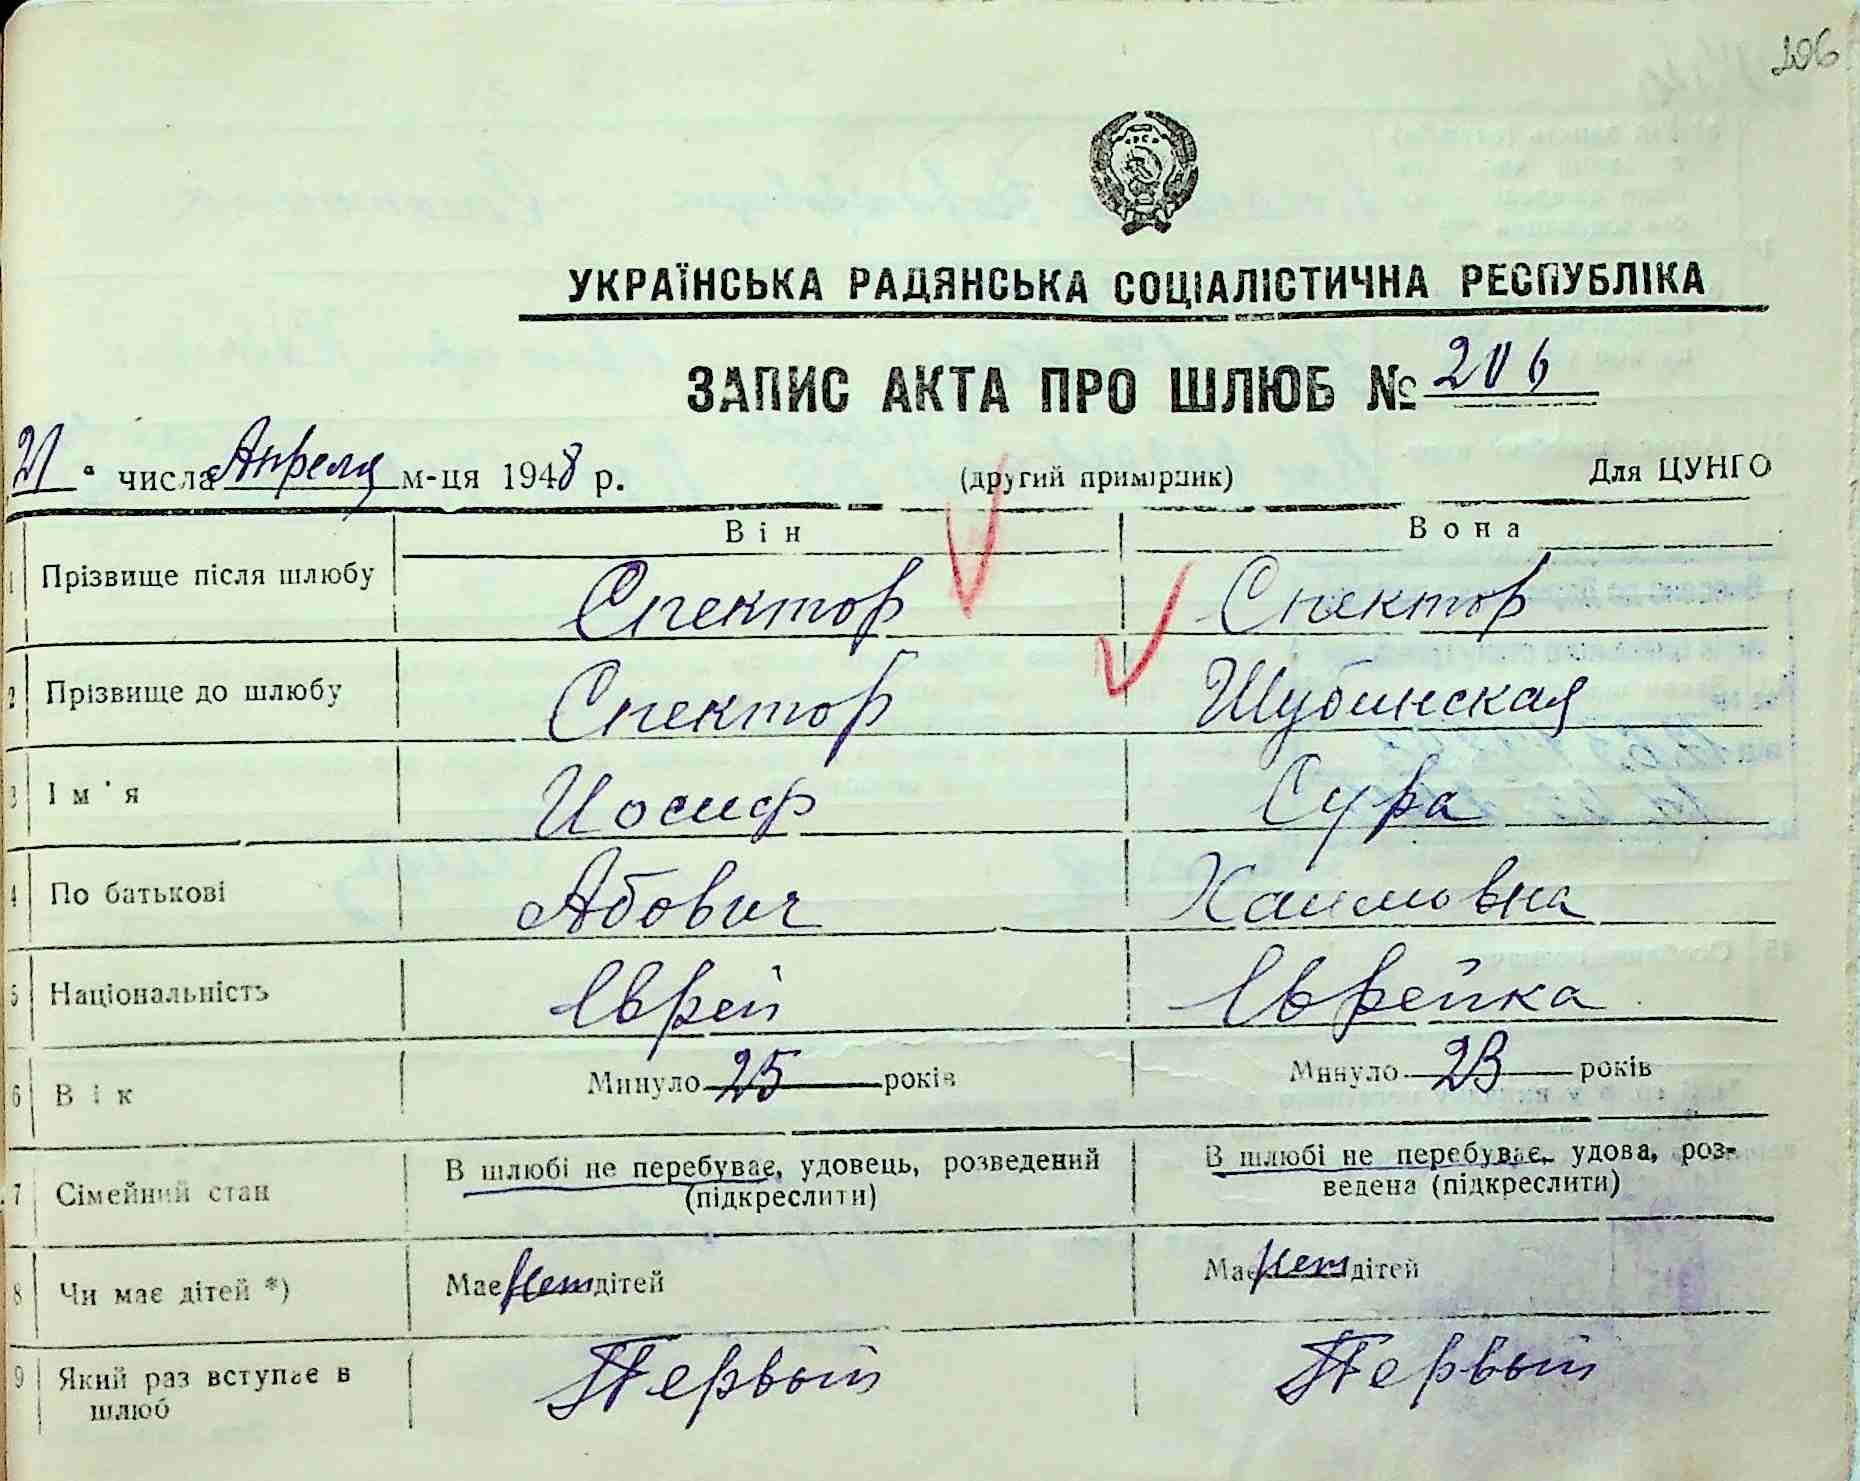 206
УКРАЇНСЬКА РАДЯНСЬКА СОЦІАЛІСТИЧНА РЕСПУБЛІКА
ЗАПИС АКТА ПРО ШЛЮБ № 206
21 числа Апреля м-ця 1948 р. (другий примірник) Для ЦУНГО
Він Вона
1 Прізвище після шлюбу Спектор Спектор
2 Прізвище до шлюбу Спектор Шубинская
3 Ім'я Иосиф Сура
4 По батькові Абович Хаимовна
5 Національність Еврей Еврейка
6 Вік Минуло 25 років Минуло 23 років
7 Сімейний стан В шлюбі не перебуває, удовець, розведений В шлюбі не перебуває, удова, роз-
(підкреслити) ведена (підкреслити)
8 Чи має дітей *) Має нет дітей Має нет дітей
9 Який раз вступає в Первый Первый
шлюб